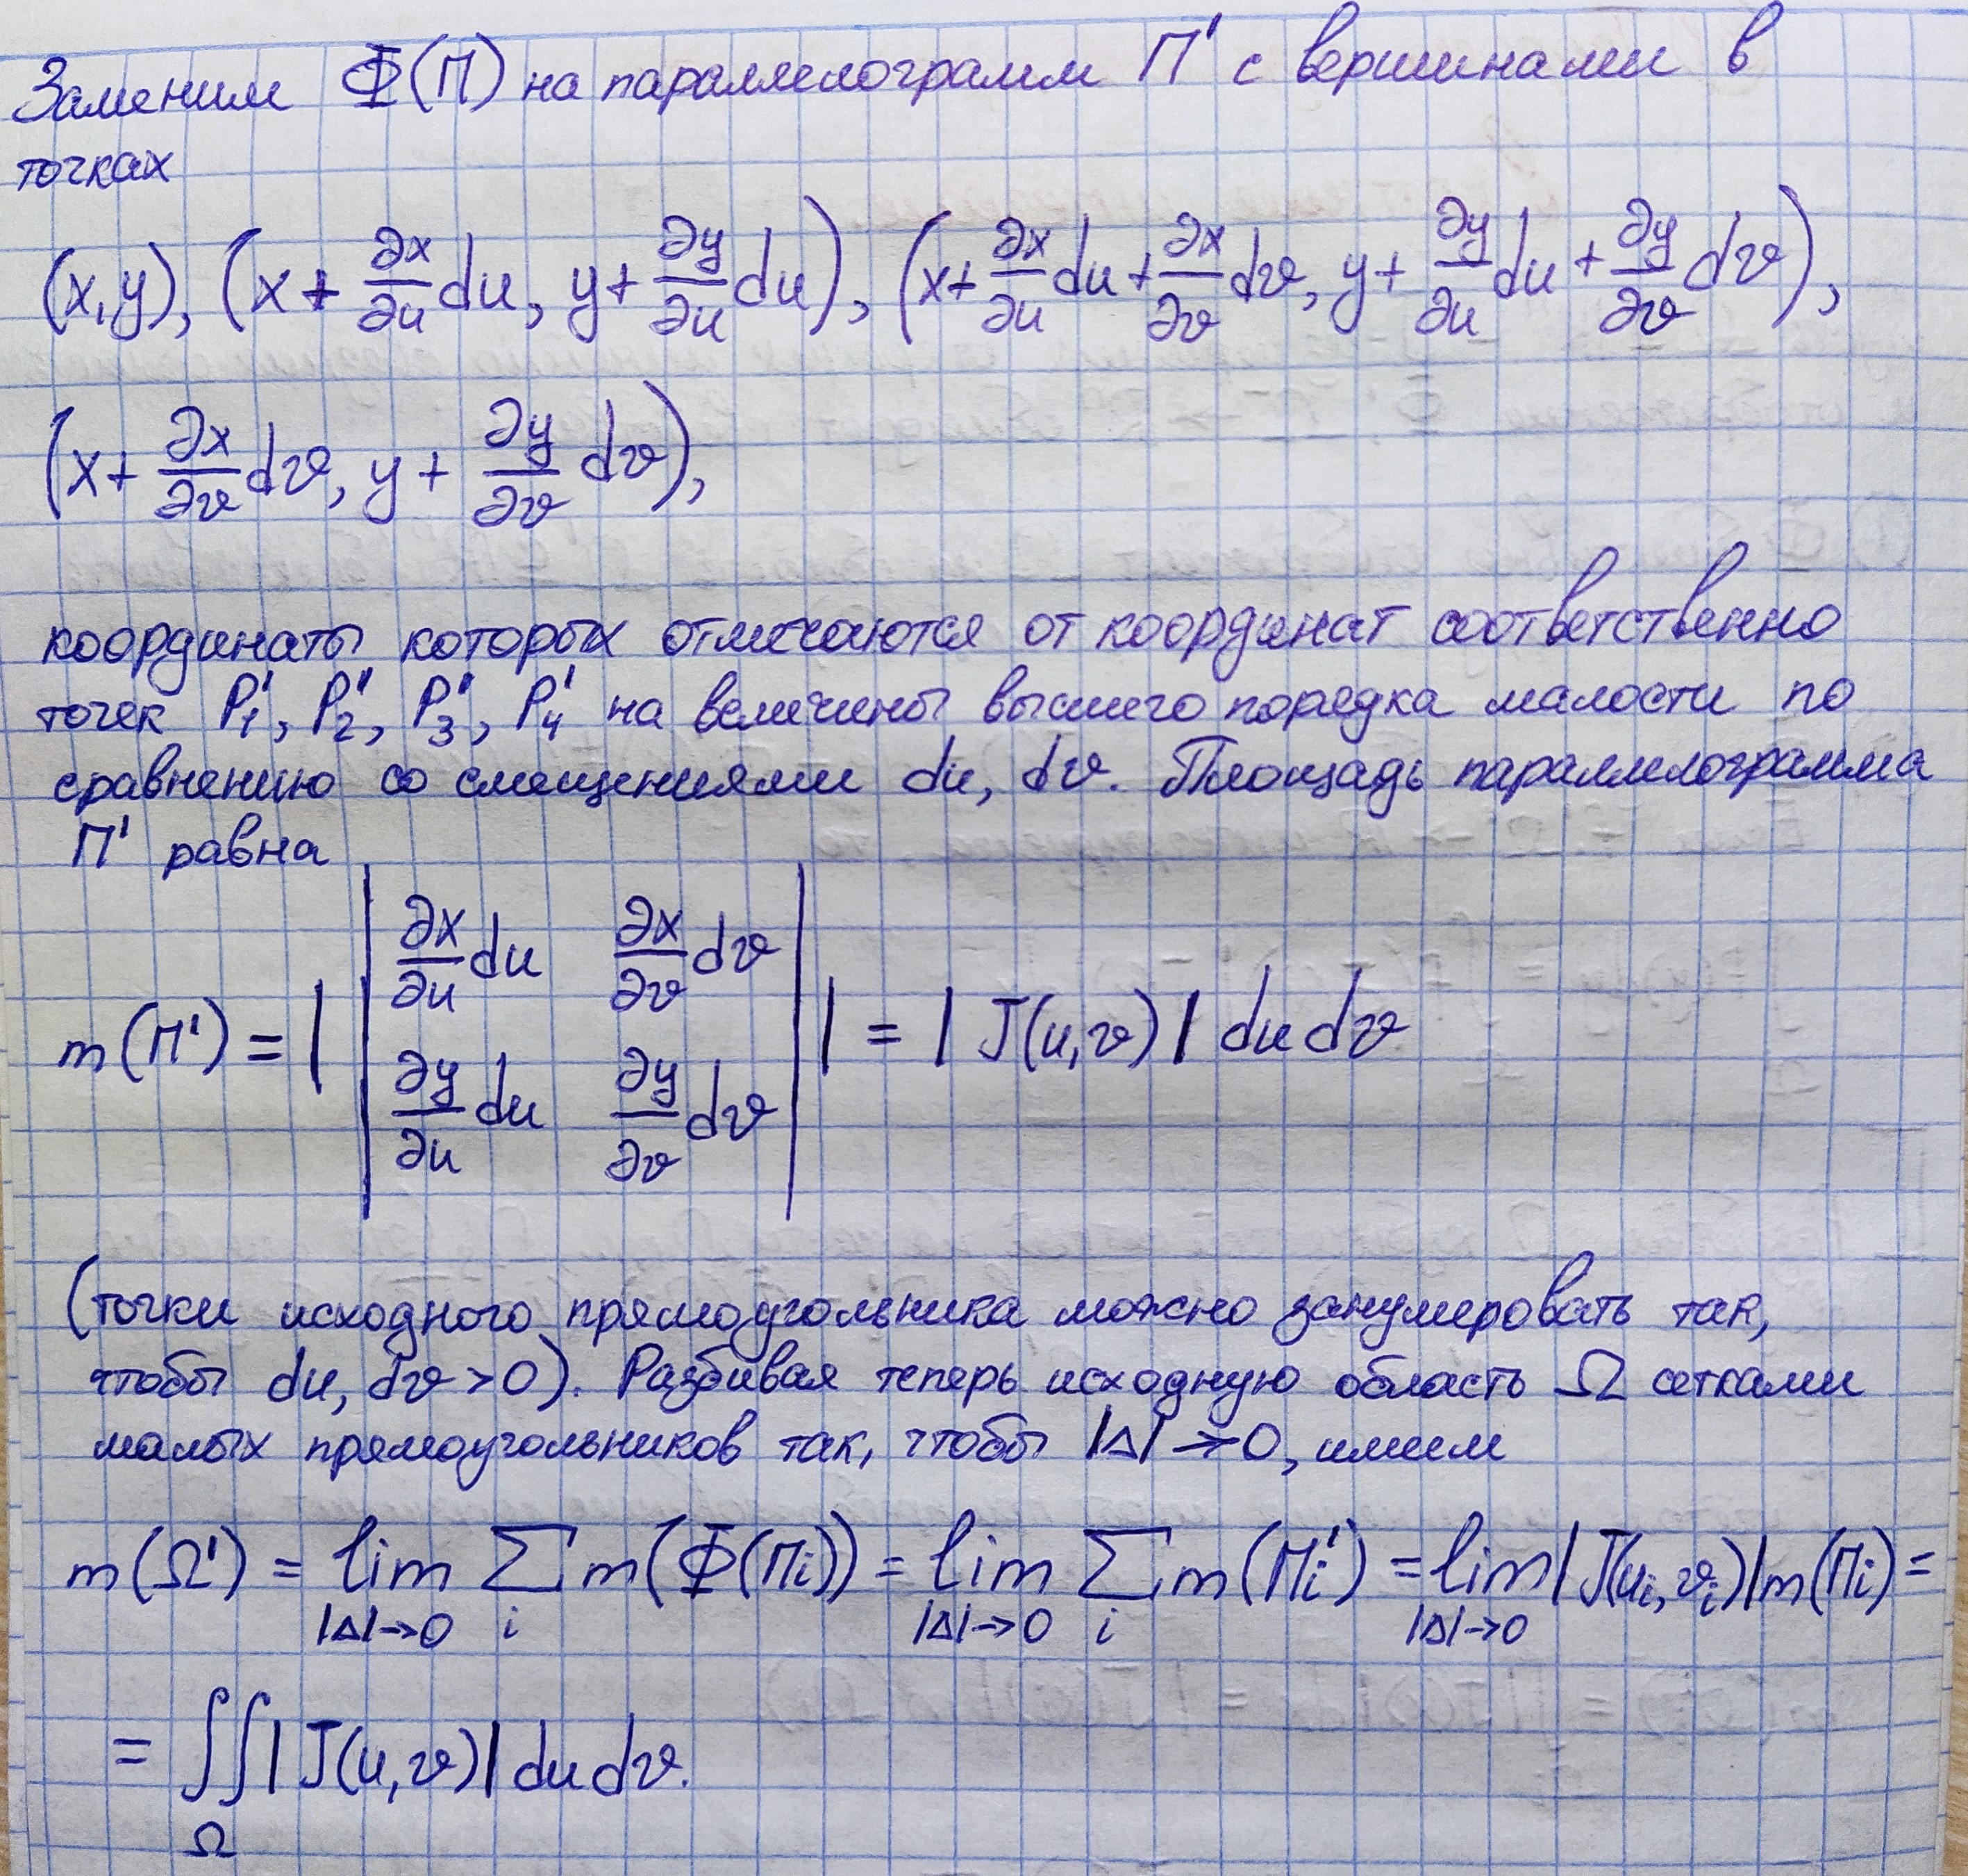 Заменим Φ(П) на параллелограмм П' с вершинами в
точках
(x, y), (x + ∂x/∂u du, y + ∂y/∂u du), (x + ∂x/∂u du + ∂x/∂v dv, y + ∂y/∂u du + ∂y/∂v dv),
(x + ∂x/∂v dv, y + ∂y/∂v dv),
координаты которых отличаются от координат соответственно
точек P₁', P₂', P₃', P₄' на величины высшего порядка малости по
сравнению со смещениями du, dv. Площадь параллелограмма
П' равна
m(П') = | | ∂x/∂u du ∂x/∂v dv ; ∂y/∂u du ∂y/∂v dv | | = | J(u, v) | du dv
(точки исходного прямоугольника можно занумеровать так,
чтобы du, dv > 0). Разбивая теперь исходную область Ω сетками
малых прямоугольников так, чтобы |Δ| → 0, имеем
m(Ω') = lim_{|Δ|→0} ∑_i m(Φ(Пi)) = lim_{|Δ|→0} ∑_i m(Пi') = lim_{|Δ|→0} |J(ui, vi)| m(Пi) =
= ∬_Ω | J(u, v) | du dv.